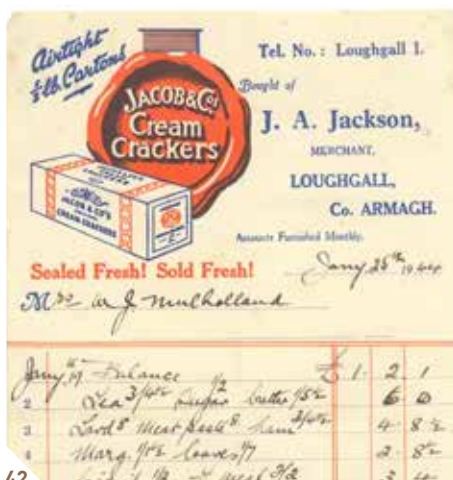 Airtight
½ lb. Cartons
JACOB & Co's
Cream
Crackers
JACOB & CO'S
CREAM CRACKERS
Sealed Fresh! Sold Fresh!
Tel. No.: Loughgall 1.
Bought of
J. A. Jackson,
MERCHANT,
LOUGHGALL,
Co. ARMAGH.
Accounts Furnished Monthly.
Jany 25th 1944
Mrs W J Mulholland
Jany Balance £ 1 . 2 . 1
2 Tea 3/4½ Sugar 1/2 butter 1/5½ 6 0
3 Lard 8 Meat paste 8 ham 3/4½ 4 . 8½
4 Marg. loaves 1/7 2 . 8½
meal 3/2
42